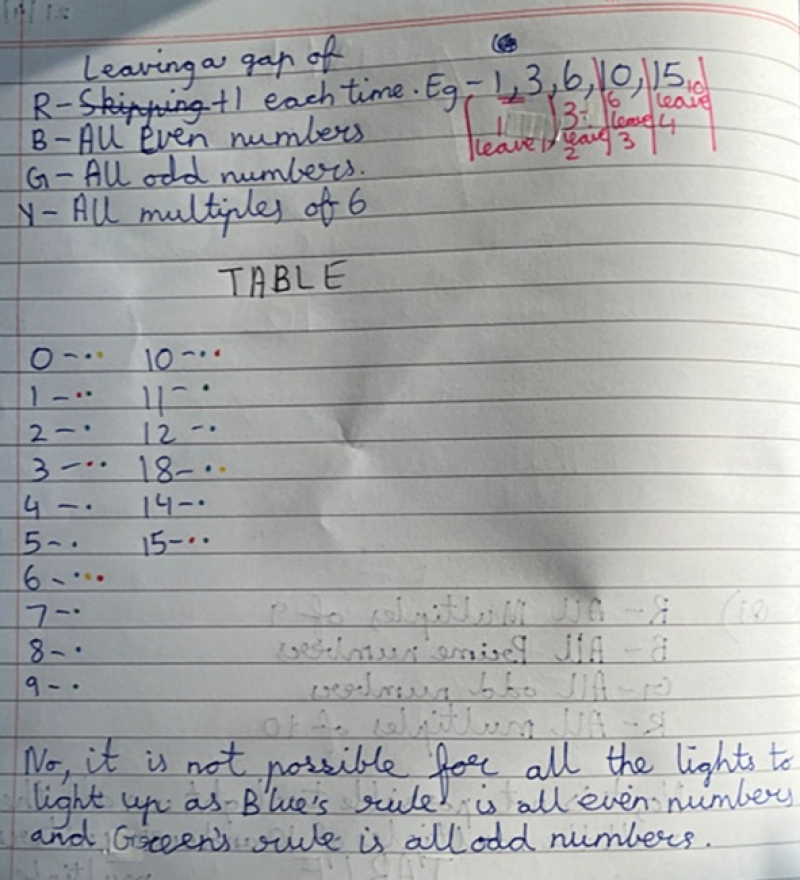 Leaving a gap of
R - Skipping +1 each time. Eg - 1, 3, 6, 10, 15
1 leave 1, 3: leave 2 6 leave 3 10 leave 4
B - All Even numbers
G - All odd numbers.
Y - All multiples of 6
TABLE
0 - 10 -
1 - 11 -
2 - 12 -
3 - 18 -
4 - 14 -
5 - 15 -
6 -
7 -
8 -
9 -
No, it is not possible for all the lights to
light up as Blue's rule is all even numbers
and Green's rule is all odd numbers.